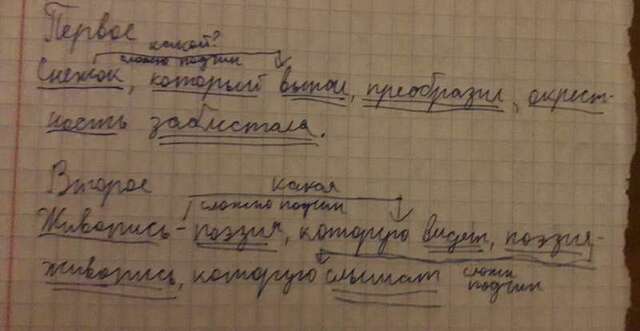 Первое
какой?
сложно подчин
Снежок, который выпал, преобразил, окрест-
ность заблистала.
Второе
какая
сложно подчин
Живопись - поэзия, которую видят, поэзия-
живопись, которую слышат сложн
подчин